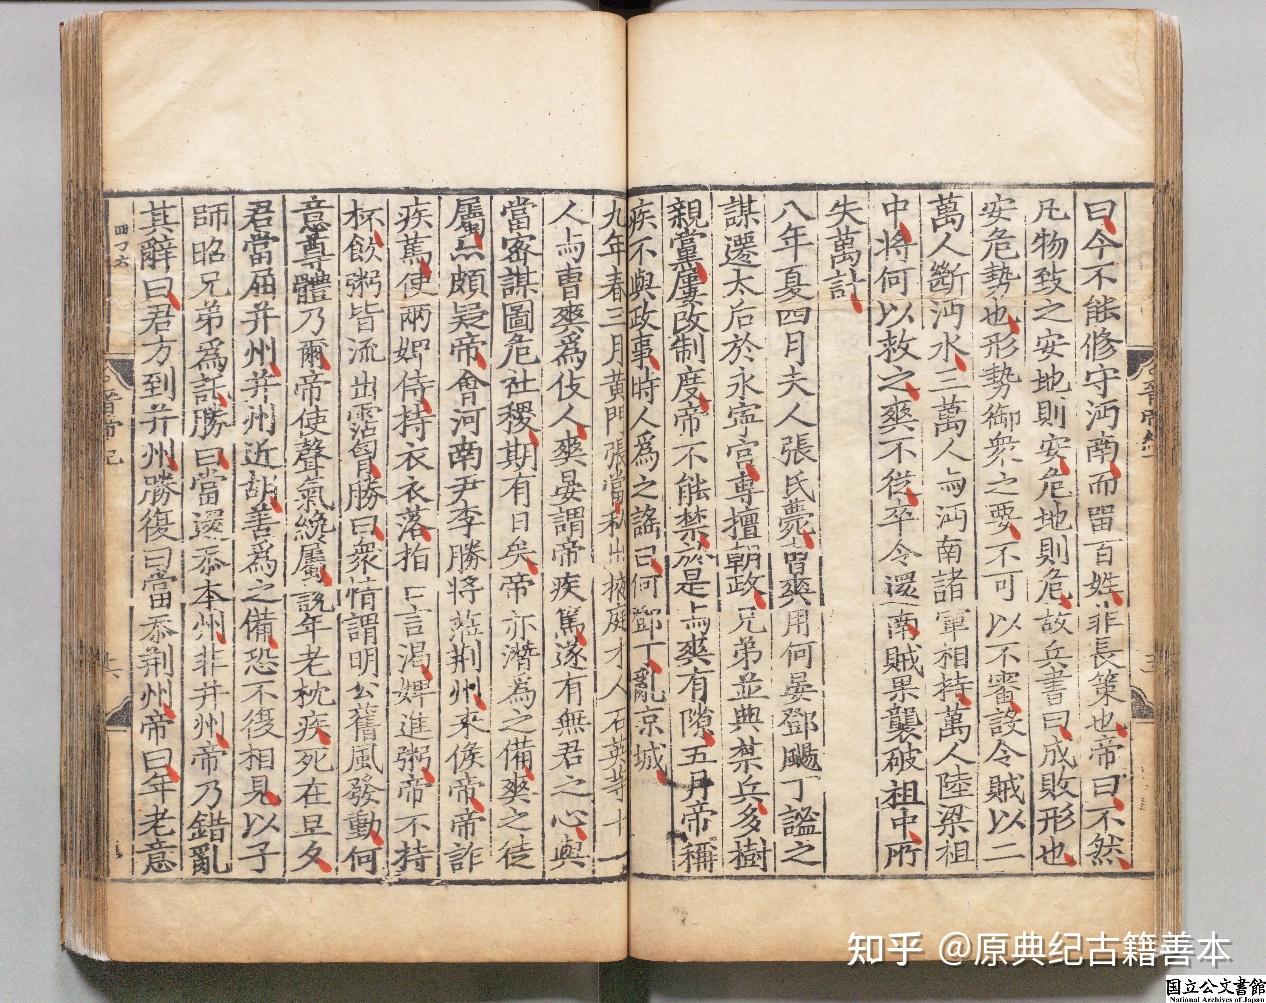 曰今不能修守沔南而留百姓非長策也帝曰不然
凡物致之安地則安危地則危故兵書曰成敗形也
安危勢也形勢御衆之要不可以不審設令賊以二
萬人斷沔水三萬人与沔南諸軍相持萬人陸梁祖
中將何以救之爽不從卒令還南賊果襲破祖中所
失萬計
八年夏四月夫人張氏薨曹爽用何晏鄧颺丁謐之
謀遷太后於永寧宮專擅朝政兄弟並典禁兵多樹
親黨屢改制度帝不能禁於是与爽有隙五月帝稱
疾不與政事時人爲之謠曰何鄧丁亂京城
九年春三月黃門張當私出掖庭才人石英等十一
人与曹爽爲伎人爽晏謂帝疾篤遂有無君之心與
當密謀圖危社稷期有日矣帝亦潛為之備爽之徒
屬亦頗疑帝會河南尹李勝將蒞荆州來候帝帝詐
疾篤使兩婢侍持衣衣落指口言渴婢進粥帝不持
杯飲粥皆流出霑胷勝曰衆情謂明公舊風發動何
意尊體乃爾帝使聲氣纔屬說年老枕疾死在旦夕
君當屈并州并州近胡善爲之備恐不復相見以子
師昭兄弟爲託勝曰當還忝本州非并州帝乃錯亂
其辭曰君方到并州勝復曰當忝荆州帝曰年老意
晉帝紀
四丁六
知乎 @原典纪古籍善本
国立公文書館
National Archives of Japan